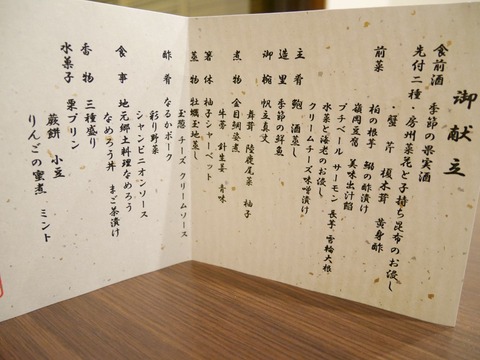 御献立
食前酒 季節の果実酒
先付二種・房州菜花と子持ち昆布のお浸し
・蟹 芹 榎木茸 黄身酢
前菜
柏の根茸 鰯の酢漬け
嶺岡豆腐 美味出汁餡
プチベール サーモン 長芋 雪輪大根
水菜と海老のお浸し
クリームチーズ味噌漬け
主肴 鮑 酒蒸し
造里 季節の鮮魚
御椀 帆立真丈
舞茸 陸鹿尾菜 柚子
煮物 金目鯛染煮
牛蒡 針生姜 青味
箸休 柚子シャーベット
蒸物 牡蠣玉地蒸し
玉葱 チーズ クリームソース
酢肴 なるかポーク
彩り野菜
シャンピニオンソース
食事 地元郷土料理なめろう
なめろう丼 まご茶漬け
香物 三種盛り
水菓子 栗プリン
蕨餅 小豆
りんごの蜜煮 ミント